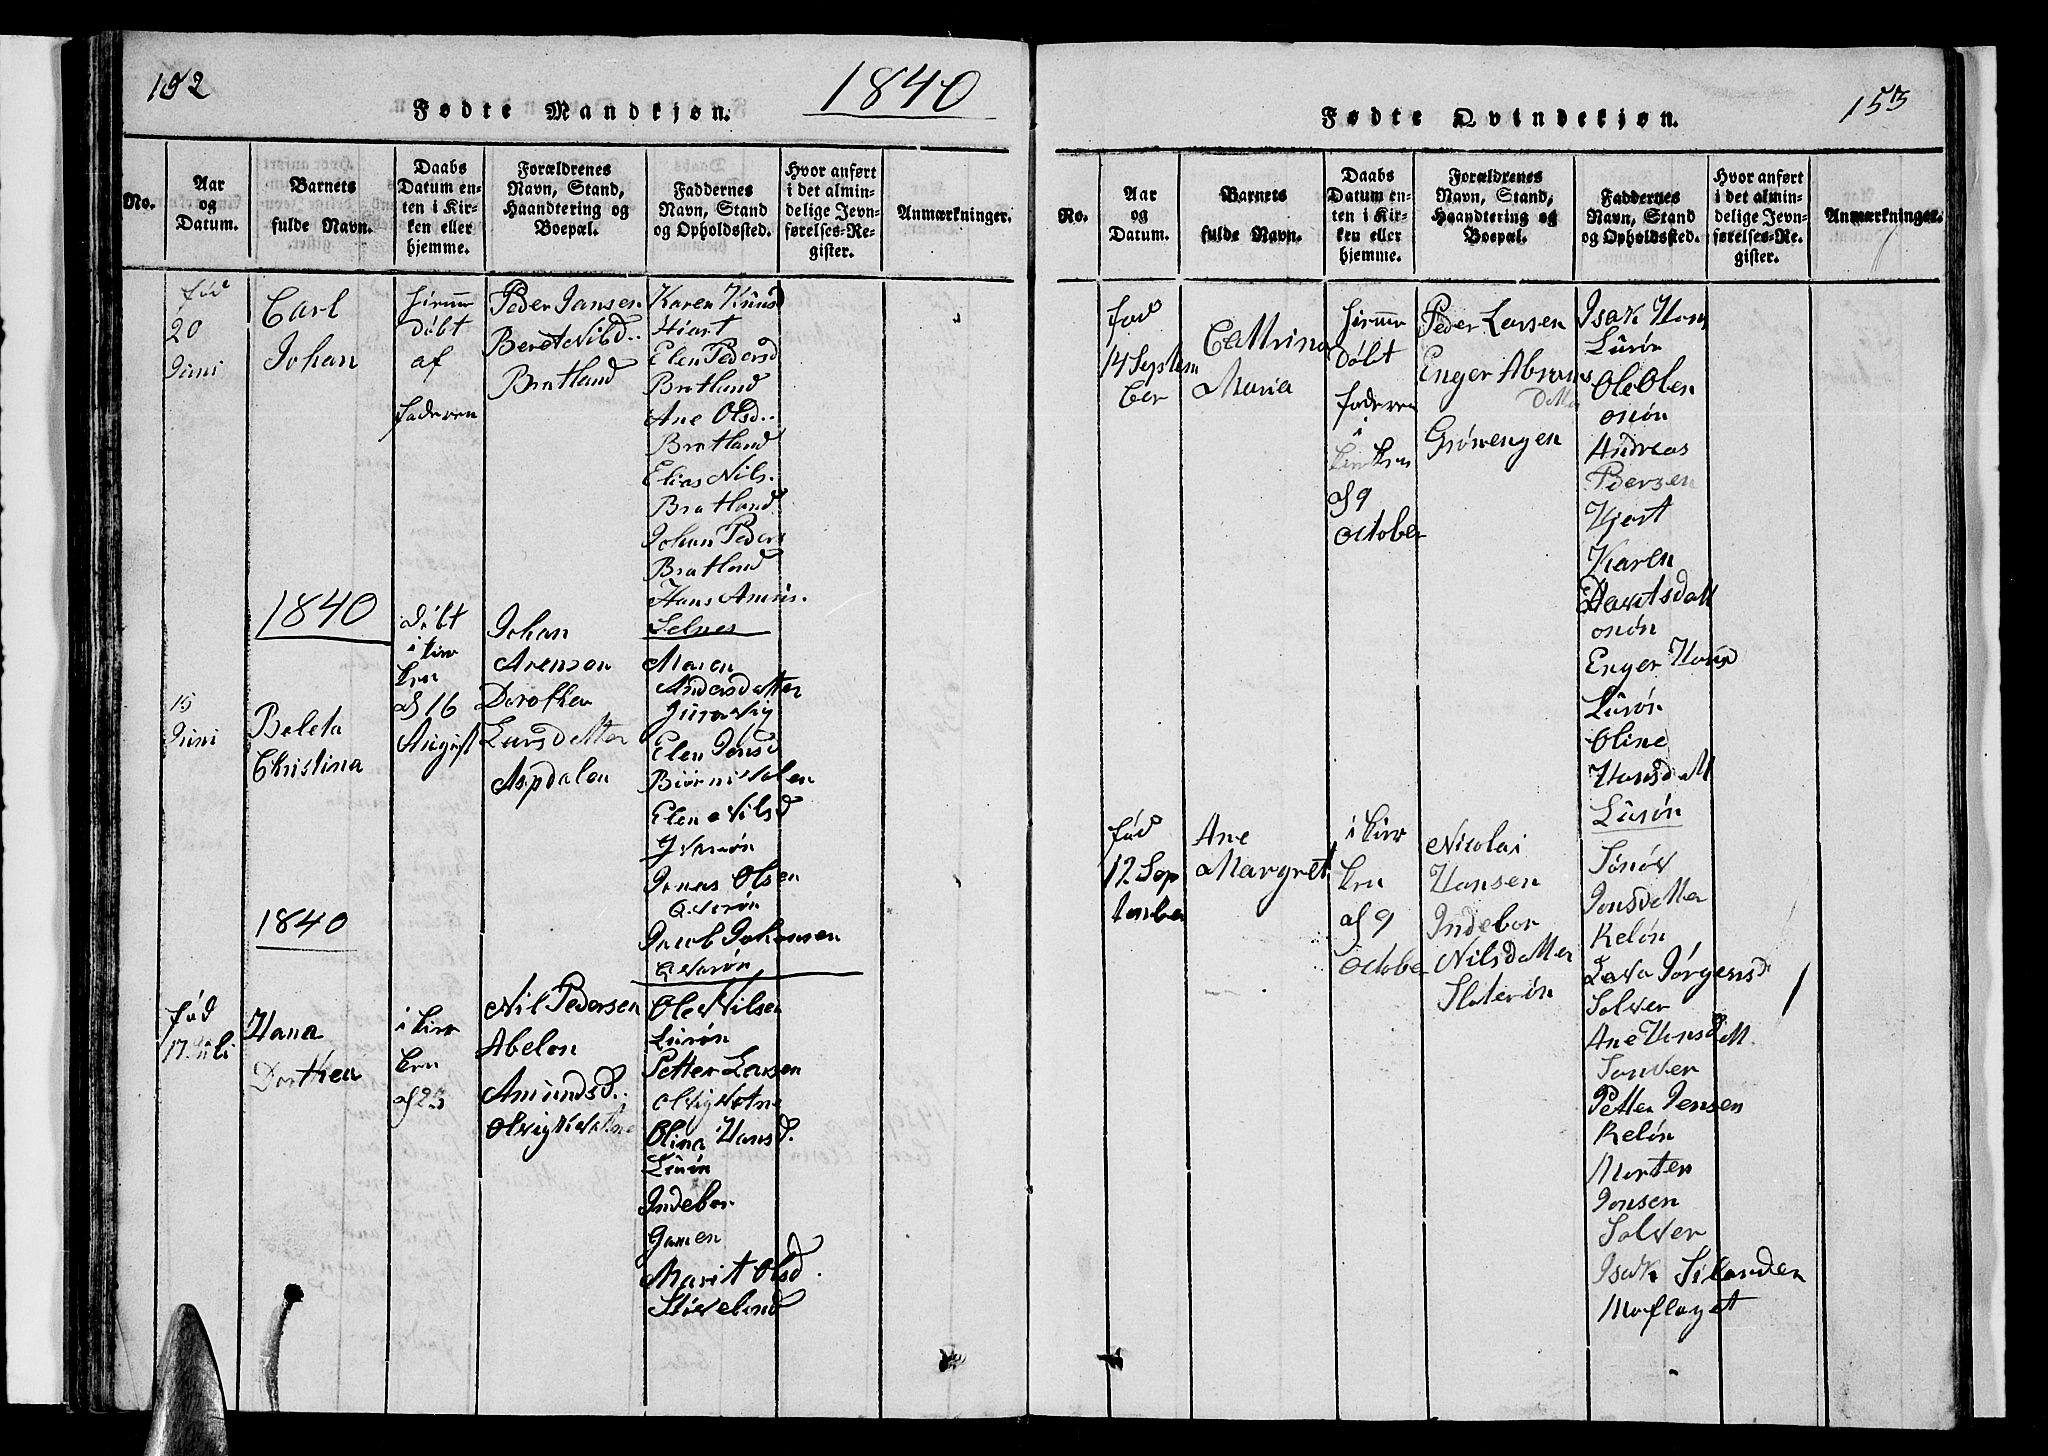 152
Fødte Mandkjøn.
1840
No.
Aar
og
Datum.
Barnets
fulde Navn.
Daabs
Datum en-
ten i Kir-
ken eller
hjemme.
Forældrenes
Navn, Stand,
Haandtering og
Boepæl.
Faddernes
Navn, Stand
og Opholdssted.
Hvor anført
i det almin-
delige Jevn-
førelses-Re-
gister.
Anmærkninger.
fød
20
Juni
Carl
Johan
døbt
af
faderen
Peder Jansen
Beret Nilsd..
Bratland
Karen
Hiart
Elen Pedersd
Bratland
Ane Olsd..
Bratland
Elias Nils.
Bratland
Johan Peders
Bratland
Hans
Selnes
1840
15
Juni
Beleta
Christina
døbt
i kir
ken
d 16
August
Johan
Arensen
Dorothea
Larsdatter
Aspdalen
Maren
Andersdatter
Elen Jonsd
Elen Nilsd
Jonas Olsen
Qvarøn
Jacob Johansen
Qvarøn
1840
fød
17 Juli
Hana
Dorthea
i kir
ken
d 23
Nil Pedersen
Abelon
Amundsd..
Ole Nilsen
Lurøn
Petter Larsen
Olina Hansd.
Lurøn
Indebor
Marit Olsd.
Støveland
153
Fødte Qvindekjøn.
No.
Aar
og
Datum.
Barnets
fulde Navn.
Daabs
Datum en-
ten i Kir-
ken eller
hjemme.
Forældrenes
Navn, Stand,
Haandtering og
Boepæl.
Faddernes
Navn, Stand
og Opholdssted.
Hvor anført
i det almin-
delige Jevn-
førelses-Re-
gister.
Anmærkninger.
fød
14 Septem
ber
Cattrina
Maria
døbt
faderen
i
kirken
d 9
October
Peder Larsen
Enger Abrams
datter
Grønengen
Isak Hans
Lurøn
Ole Olsen
onøn
Andreas
Pedersen
Hjort
Karen
onøn
Enger Hansd
Lurøn
Oline
Hansdatt
Lurøn
fød
12 Sep
tember
Ane
Margret
i kir
ken
d 9
October
Nicolai
Hansen
Indebor
Nilsdatter
Sloterøn
Jonsdatter
Reløn
Jørgensd
Solver
Ane Hansdatt.
Petter Jensen
Reløn
Morten
Jonsen
Solver
Isak
Moflaget